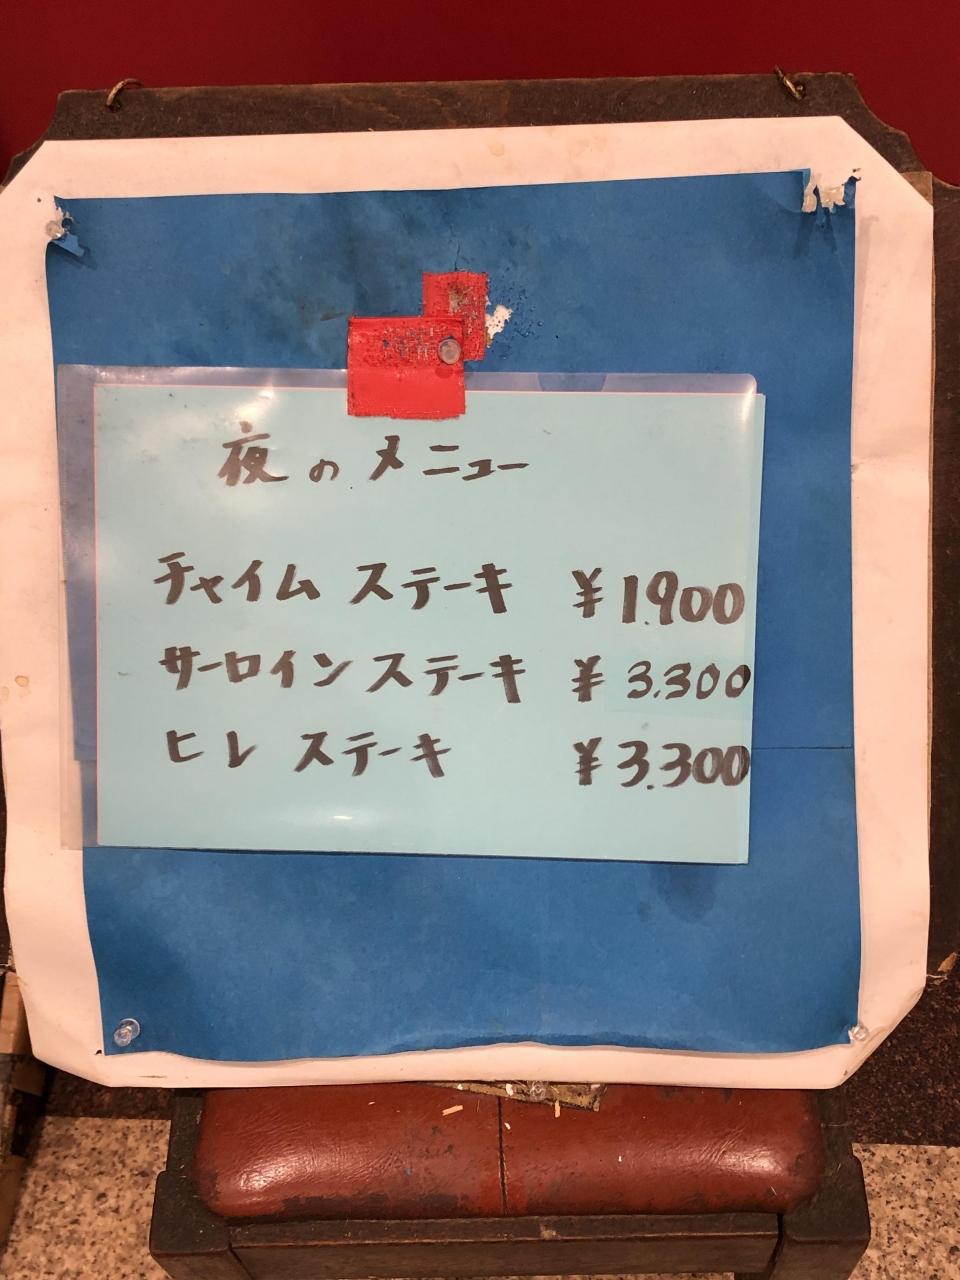 夜のメニュー
チャイム ステーキ ¥1.900
サーロイン ステーキ ¥3.300
ヒレ ステーキ ¥3.300